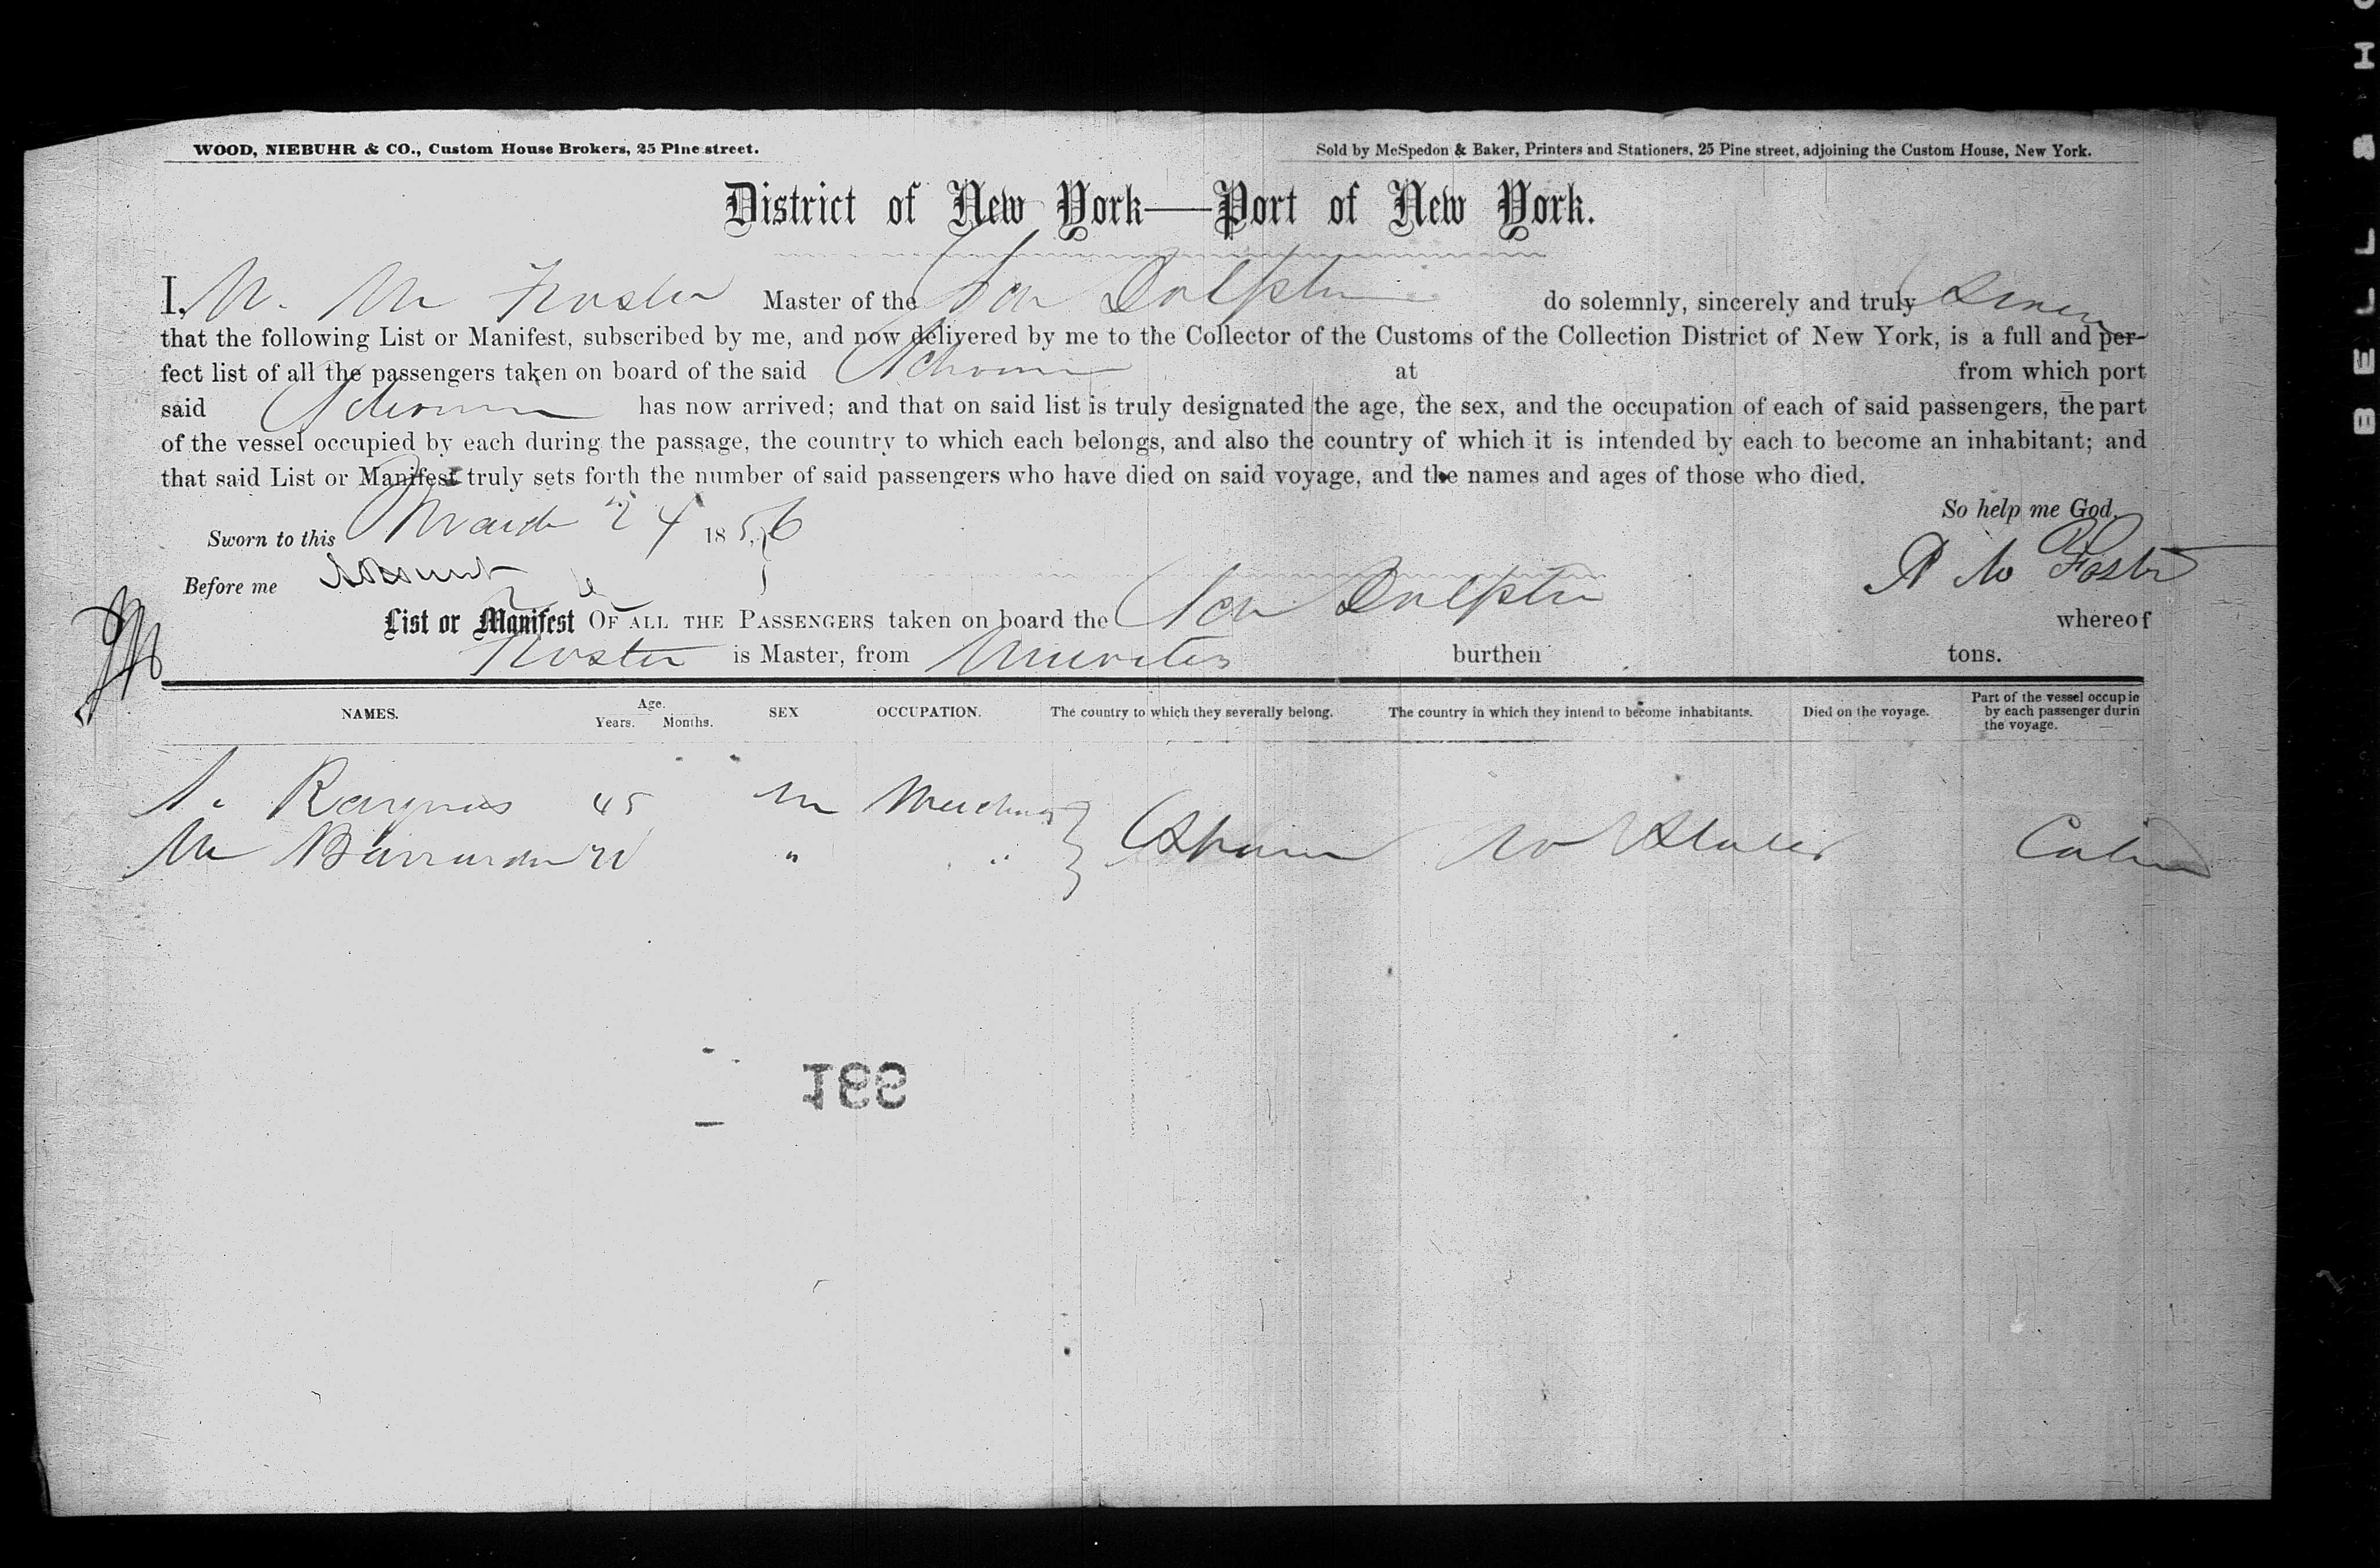 WOOD, NIEBUHR & CO., Custom House Brokers, 25 Pine street.
Sold by McSpedon & Baker, Printers and Stationers, 25 Pine street, adjoining the Custom House, New York.
District of New York—Port of New York.
I, Foster Master of the Sch Dolphin do solemnly, sincerely and truly Swear
that the following List or Manifest, subscribed by me, and now delivered by me to the Collector of the Customs of the Collection District of New York, is a full and per-
fect list of all the passengers taken on board of the said Schooner at from which port
said Schooner has now arrived; and that on said list is truly designated the age, the sex, and the occupation of each of said passengers, the part
of the vessel occupied by each during the passage, the country to which each belongs, and also the country of which it is intended by each to become an inhabitant; and
that said List or Manifest truly sets forth the number of said passengers who have died on said voyage, and the names and ages of those who died.
So help me God.
Sworn to this March 24 1856
Before me
Foster
List or Manifest OF ALL THE PASSENGERS taken on board the Sch Dolphin whereof
Foster is Master, from burthen tons.
NAMES. Age. Years. Months. SEX OCCUPATION. The country to which they severally belong. The country in which they intend to become inhabitants. Died on the voyage. Part of the vessel occupie by each passenger durin the voyage.
45 M Merchant
" " Spain States Cabin
199
BELL